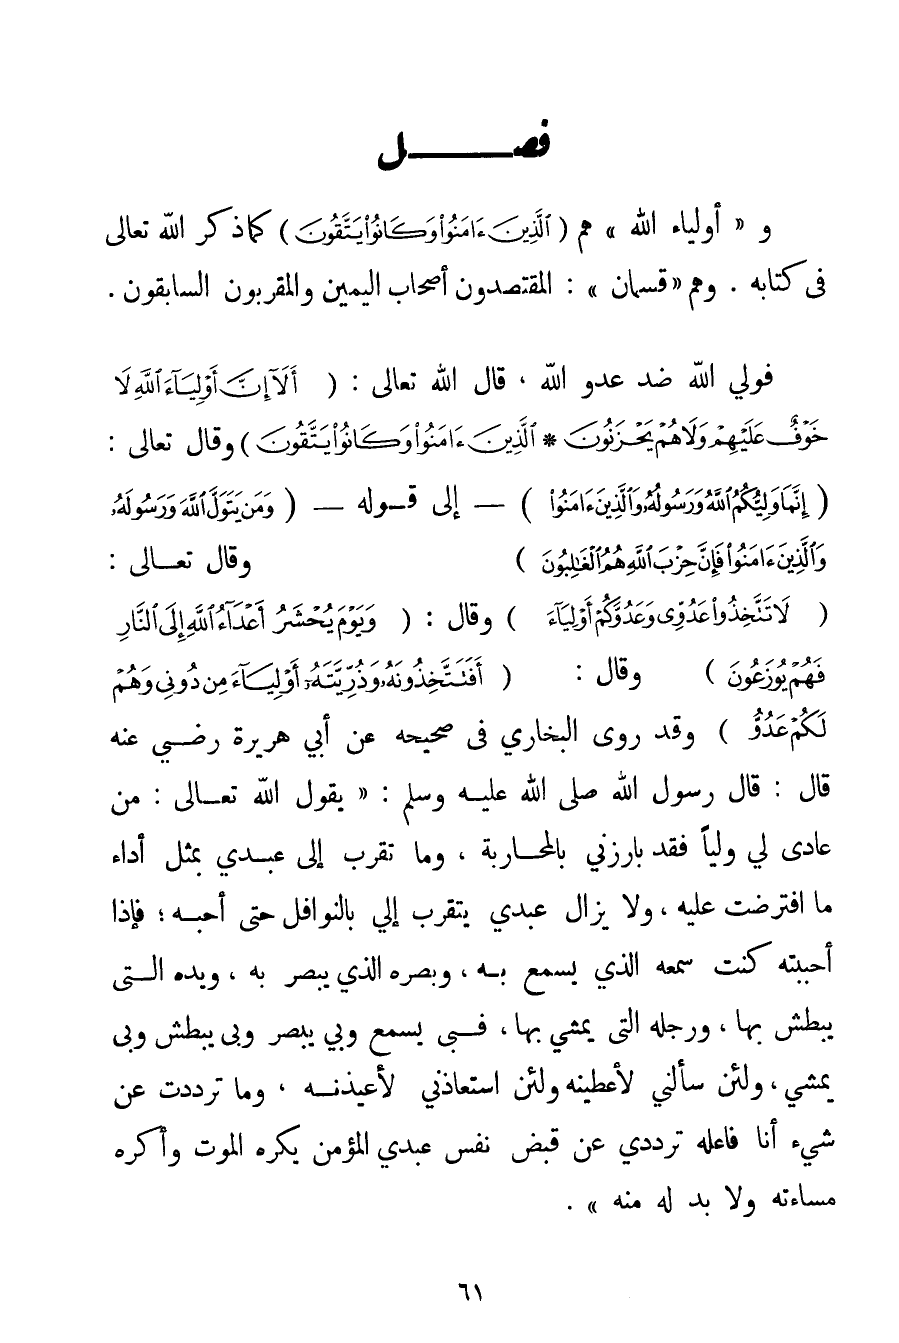 فصـــــــل
و « أولياء الله » هم ( ٱلَّذِينَ ءَامَنُوا۟ وَكَانُوا۟ يَتَّقُونَ ) كما ذكر الله تعالى
فى كتابه . وهم « قسمان » : المقتصدون أصحاب اليمين والمقربون السابقون .
فولي الله ضد عدو الله ، قال الله تعالى : ( أَلَآ إِنَّ أَوْلِيَآءَ ٱللَّهِ لَا
خَوْفٌ عَلَيْهِمْ وَلَا هُمْ يَحْزَنُونَ * ٱلَّذِينَ ءَامَنُوا۟ وَكَانُوا۟ يَتَّقُونَ ) وقال تعالى :
( إِنَّمَا وَلِيُّكُمُ ٱللَّهُ وَرَسُولُهُۥ وَٱلَّذِينَ ءَامَنُوا۟ ) — إلى قـوله — ( وَمَن يَتَوَلَّ ٱللَّهَ وَرَسُولَهُۥ
وَٱلَّذِينَ ءَامَنُوا۟ فَإِنَّ حِزْبَ ٱللَّهِ هُمُ ٱلْغَٰلِبُونَ ) وقال تعـالى :
( لَا تَتَّخِذُوا۟ عَدُوِّى وَعَدُوَّكُمْ أَوْلِيَآءَ ) وقال : ( وَيَوْمَ يُحْشَرُ أَعْدَآءُ ٱللَّهِ إِلَى ٱلنَّارِ
فَهُمْ يُوزَعُونَ ) وقال : ( أَفَتَتَّخِذُونَهُۥ وَذُرِّيَّتَهُۥٓ أَوْلِيَآءَ مِن دُونِى وَهُمْ
لَكُمْ عَدُوٌّ ) وقد روى البخاري فى صحيحه عن أبي هريرة رضـي عنه
قال : قال رسول الله صلى الله عليـه وسلم : « يقول الله تعـالى : من
عادى لي ولياً فقد بارزني بالمحـاربة ، وما تقرب إلى عبـدي بمثل أداء
ما افترضت عليه ، ولا يزال عبدي يتقرب إلي بالنوافل حتى أحبـه ؛ فإذا
أحببته كنت سمعه الذي يسمع بـه ، وبصره الذي يبصر به ، ويده الـتى
يبطش بها ، ورجله التى يمشي بها ، فـبى يسمع وبي يبصر وبى يبطش وبى
يمشي ، ولئن سألني لأعطينه ولئن استعاذني لأعيذنـه ، وما ترددت عن
شيء أنا فاعله ترددي عن قبض نفس عبدي المؤمن يكره الموت وأكره
مساءته ولا بد له منه » .
٦١